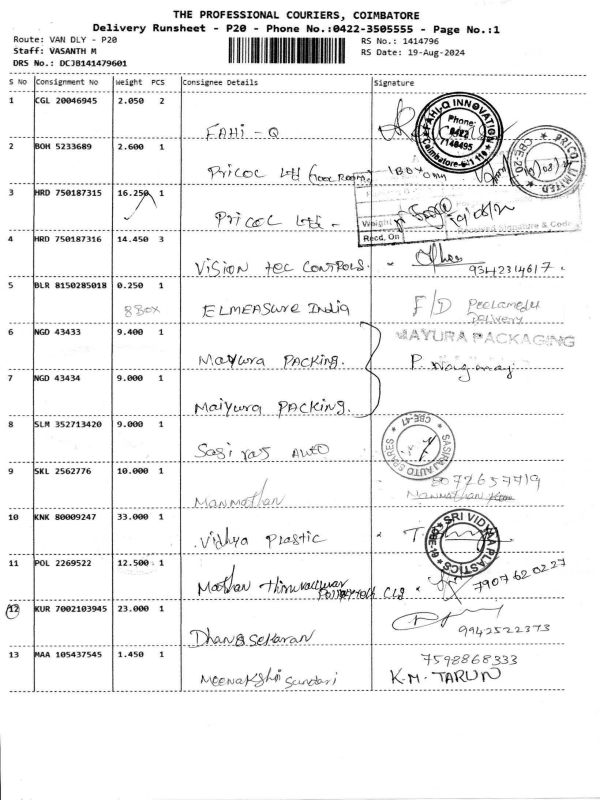 THE PROFESSIONAL COURIERS, COIMBATORE
Delivery Runsheet - P20 - Phone No.:0422-3505555 - Page No.:1
Route: VAN DLY - P20
RS No.: 1414796
Staff: VASANTH M
RS Date: 19-Aug-2024
DRS No.: DCJ8141479601
S No Consignment No Weight PCS Consignee Details Signature
1 CGL 20046945 2.050 2
FAHI - Q
FAHI-Q INNOVATION
Phone:
0422
7140495
2 BOH 5233689 2.600 1
Pricol Ltd 1 BOX
PRICOL LIMITED
CBE-20
3 HRD 750187315 16.250 1
Pricol Ltd -
Weight
Recd. On
Signature &
4 HRD 750187316 14.450 3
Vision tec CONTROLS. 9342314617.
5 BLR 8150285018 0.250 1
8 BOX ELMEASURE India F/D Peelamedu
Delivery
MAYURA PACKAGING
6 NGD 43433 9.400 1
Mayura PACKING.
7 NGD 43434 9.000 1
Maiyura PACKING.
8 SLM 352713420 9.000 1
Sasi raj AUTO
SASIRAJ AUTO SPARES
CBE-47
9 SKL 2562776 10.000 1
8072657719
Manmathan Manmathan
10 KNK 80009247 33.000 1
Vidhya Plastic
SRI VIDHYAA PLASTICS
11 POL 2269522 12.500 1
Mathan 7907620227
12 KUR 7002103945 23.000 1
Dhanasekaran 9942522373
13 MAA 105437545 1.450 1
7598868333
Meenakshi Sundari K.M. TARUN